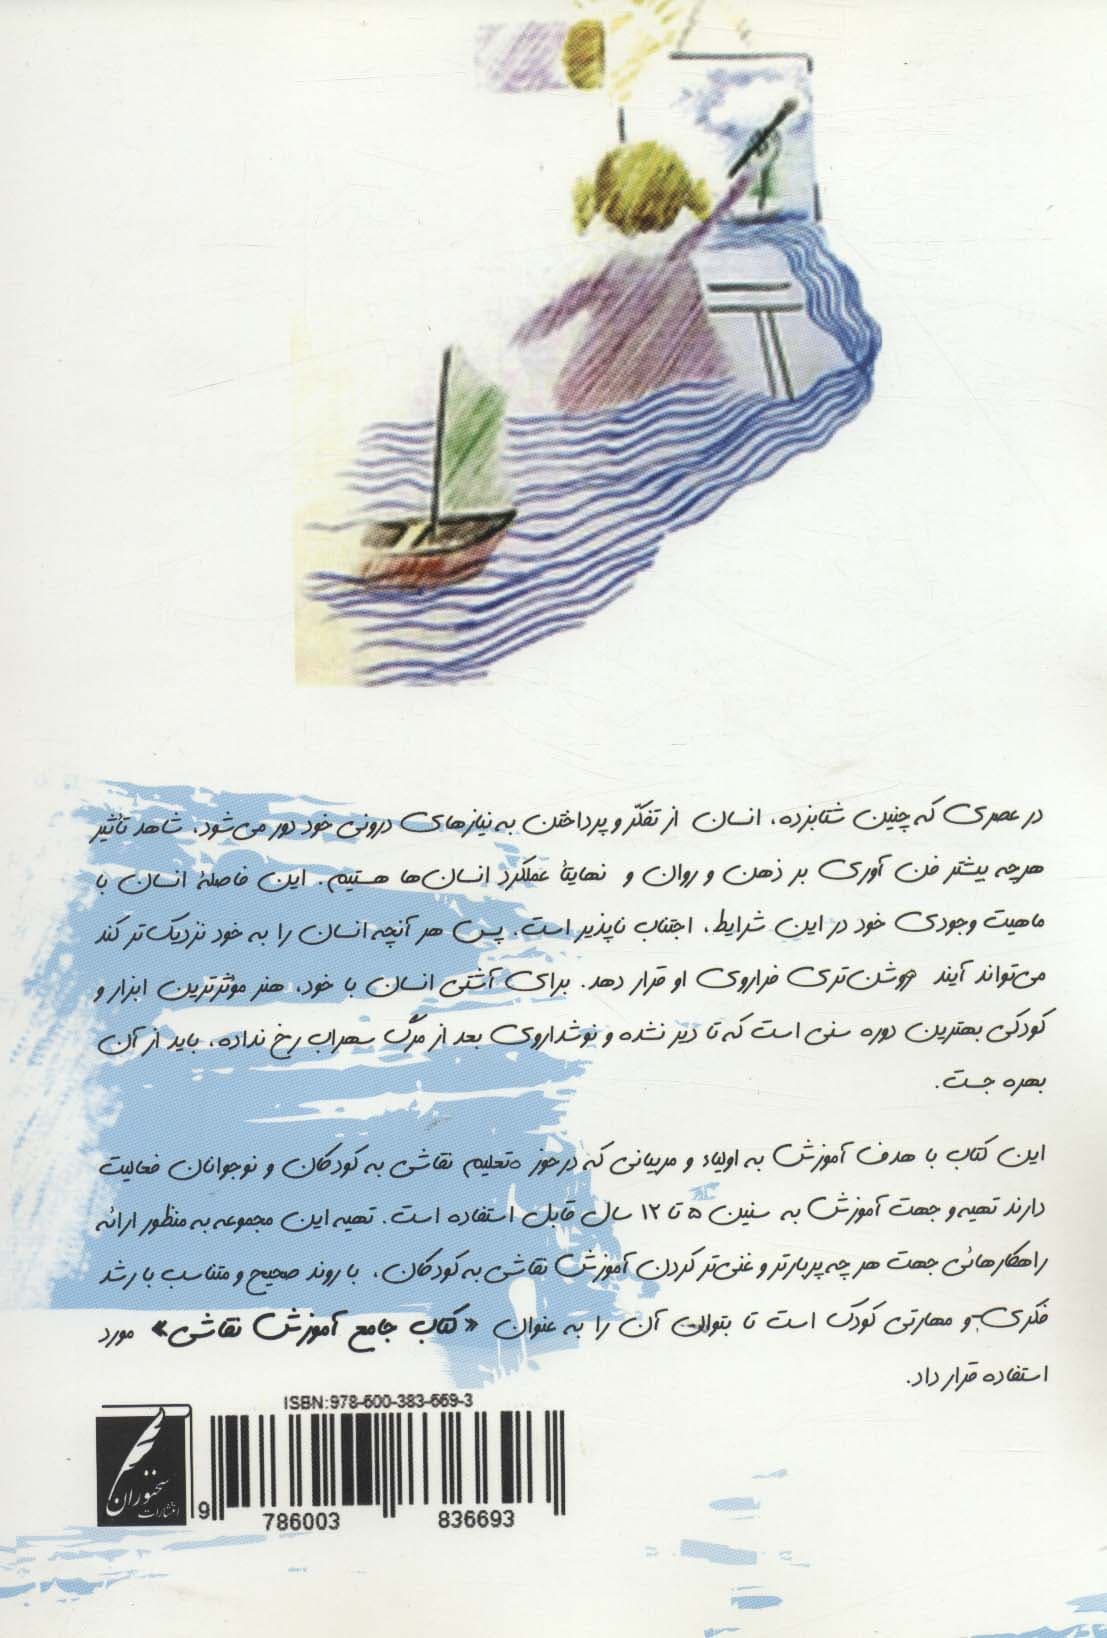 در عصری که چنین شتابزده، انسان از تفکّر و پرداختن به نیازهای درونی خود دور می‌شود، شاهد تأثیر
هرچه بیشتر فن آوری بر ذهن و روان و نهایتاً عملکرد انسان‌ها هستیم. این فاصلهٔ انسان با
ماهیت وجودی خود در این شرایط، اجتناب ناپذیر است. پس هر آنچه انسان را به خود نزدیک‌تر کند
می‌تواند آیند هروشن‌تری فراروی او قرار دهد. برای آشتی انسان با خود، هنر مؤثرترین ابزار و
کودکی بهترین دوره سنی است که تا دیر نشده و نوشداروی بعد از مرگ سهراب رخ نداده، باید از آن
بهره جست.
این کتاب با هدف آموزش به اولیاء و مربیانی که در حوز ه‌تعلیم نقاشی به کودکان و نوجوانان فعالیت
دارند تهیه و جهت آموزش به سنین ۵ تا ۱۲ سال قابل استفاده است. تهیه این مجموعه به منظور ارائه
راهکارهائی جهت هر چه پربارتر و غنی‌تر کردن آموزش نقاشی به کودکان، با روند صحیح و متناسب با رشد
فکری و مهارتی کودک است تا بتوان آن را به عنوان «کتاب جامع آموزش نقاشی» مورد
استفاده قرار داد.
ISBN:978-600-383-669-3
9 786003 836693
انتشارات سخنوران